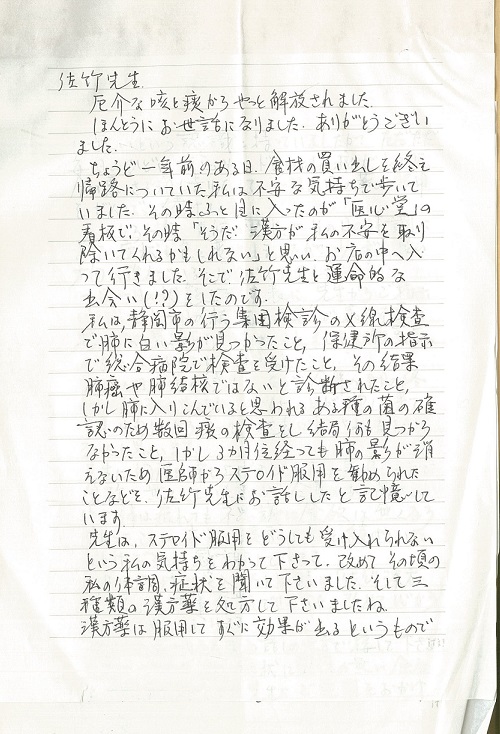 佐竹先生
厄介な咳と痰からやっと解放されました。
ほんとうにお世話になりました。ありがとうござい
ました。
ちょうど一年前のある日、食材の買い出しを終え
帰路についていた私は不安な気持ちで歩いて
いました。その時ふと目に入ったのが「医心堂」の
看板で、その時「そうだ 漢方が私の不安を取り
除いてくれるかもしれない」と思い、お店の中へ入
って行きました。そこで佐竹先生と運命的な
出会い(!?)をしたのです。
私は、静岡市の行う集団検診のX線検査
で肺に白い影が見つかったこと、保健所の指示
で総合病院で検査を受けたこと、その結果
肺癌や肺結核ではないと診断されたこと、
しかし肺に入りこんでいると思われるある種の菌の確
認のため数回痰の検査をし結局何も見つから
なかったこと、しかし3か月位経っても肺の影が消
えないため医師からステロイド服用を勧められた
ことなどを、佐竹先生にお話ししたと記憶して
います。
先生は、ステロイド服用をどうしても受け入れられない
という私の気持ちをわかって下さって、改めてその頃の
私の体調、症状を聞いて下さいました。そして三
種類の漢方薬を処方して下さいましたね。
漢方薬は服用してすぐに効果が出るというもので